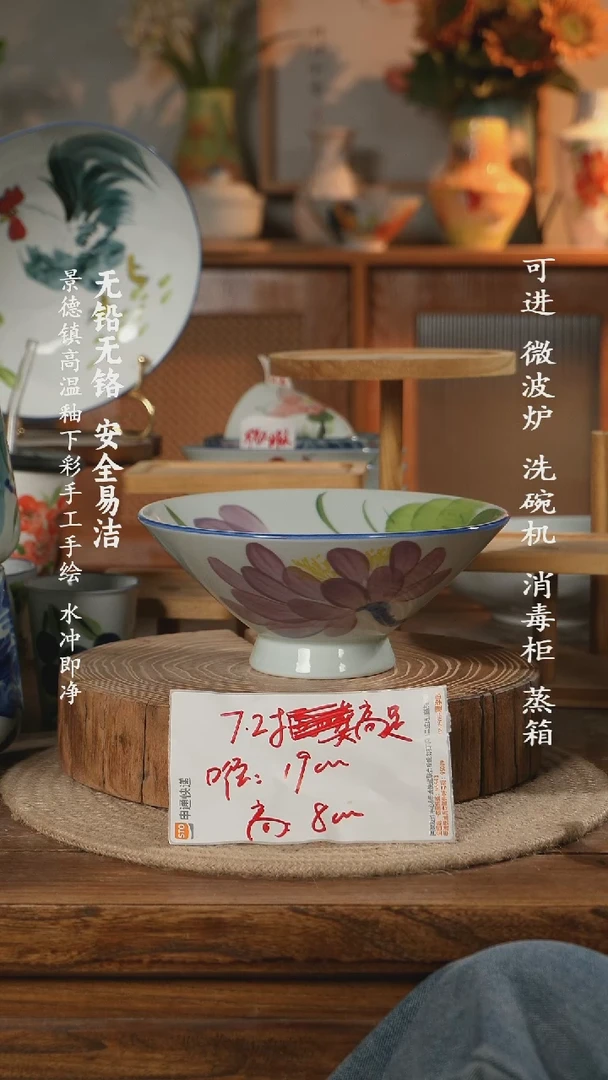 可进 微波炉 洗碗机 消毒柜 蒸箱
无铅无铬 安全易洁
景德镇高温釉下彩手工手绘 水冲即净
7.2寸 高足
口径:19cm
高:8cm
申通快递
STO